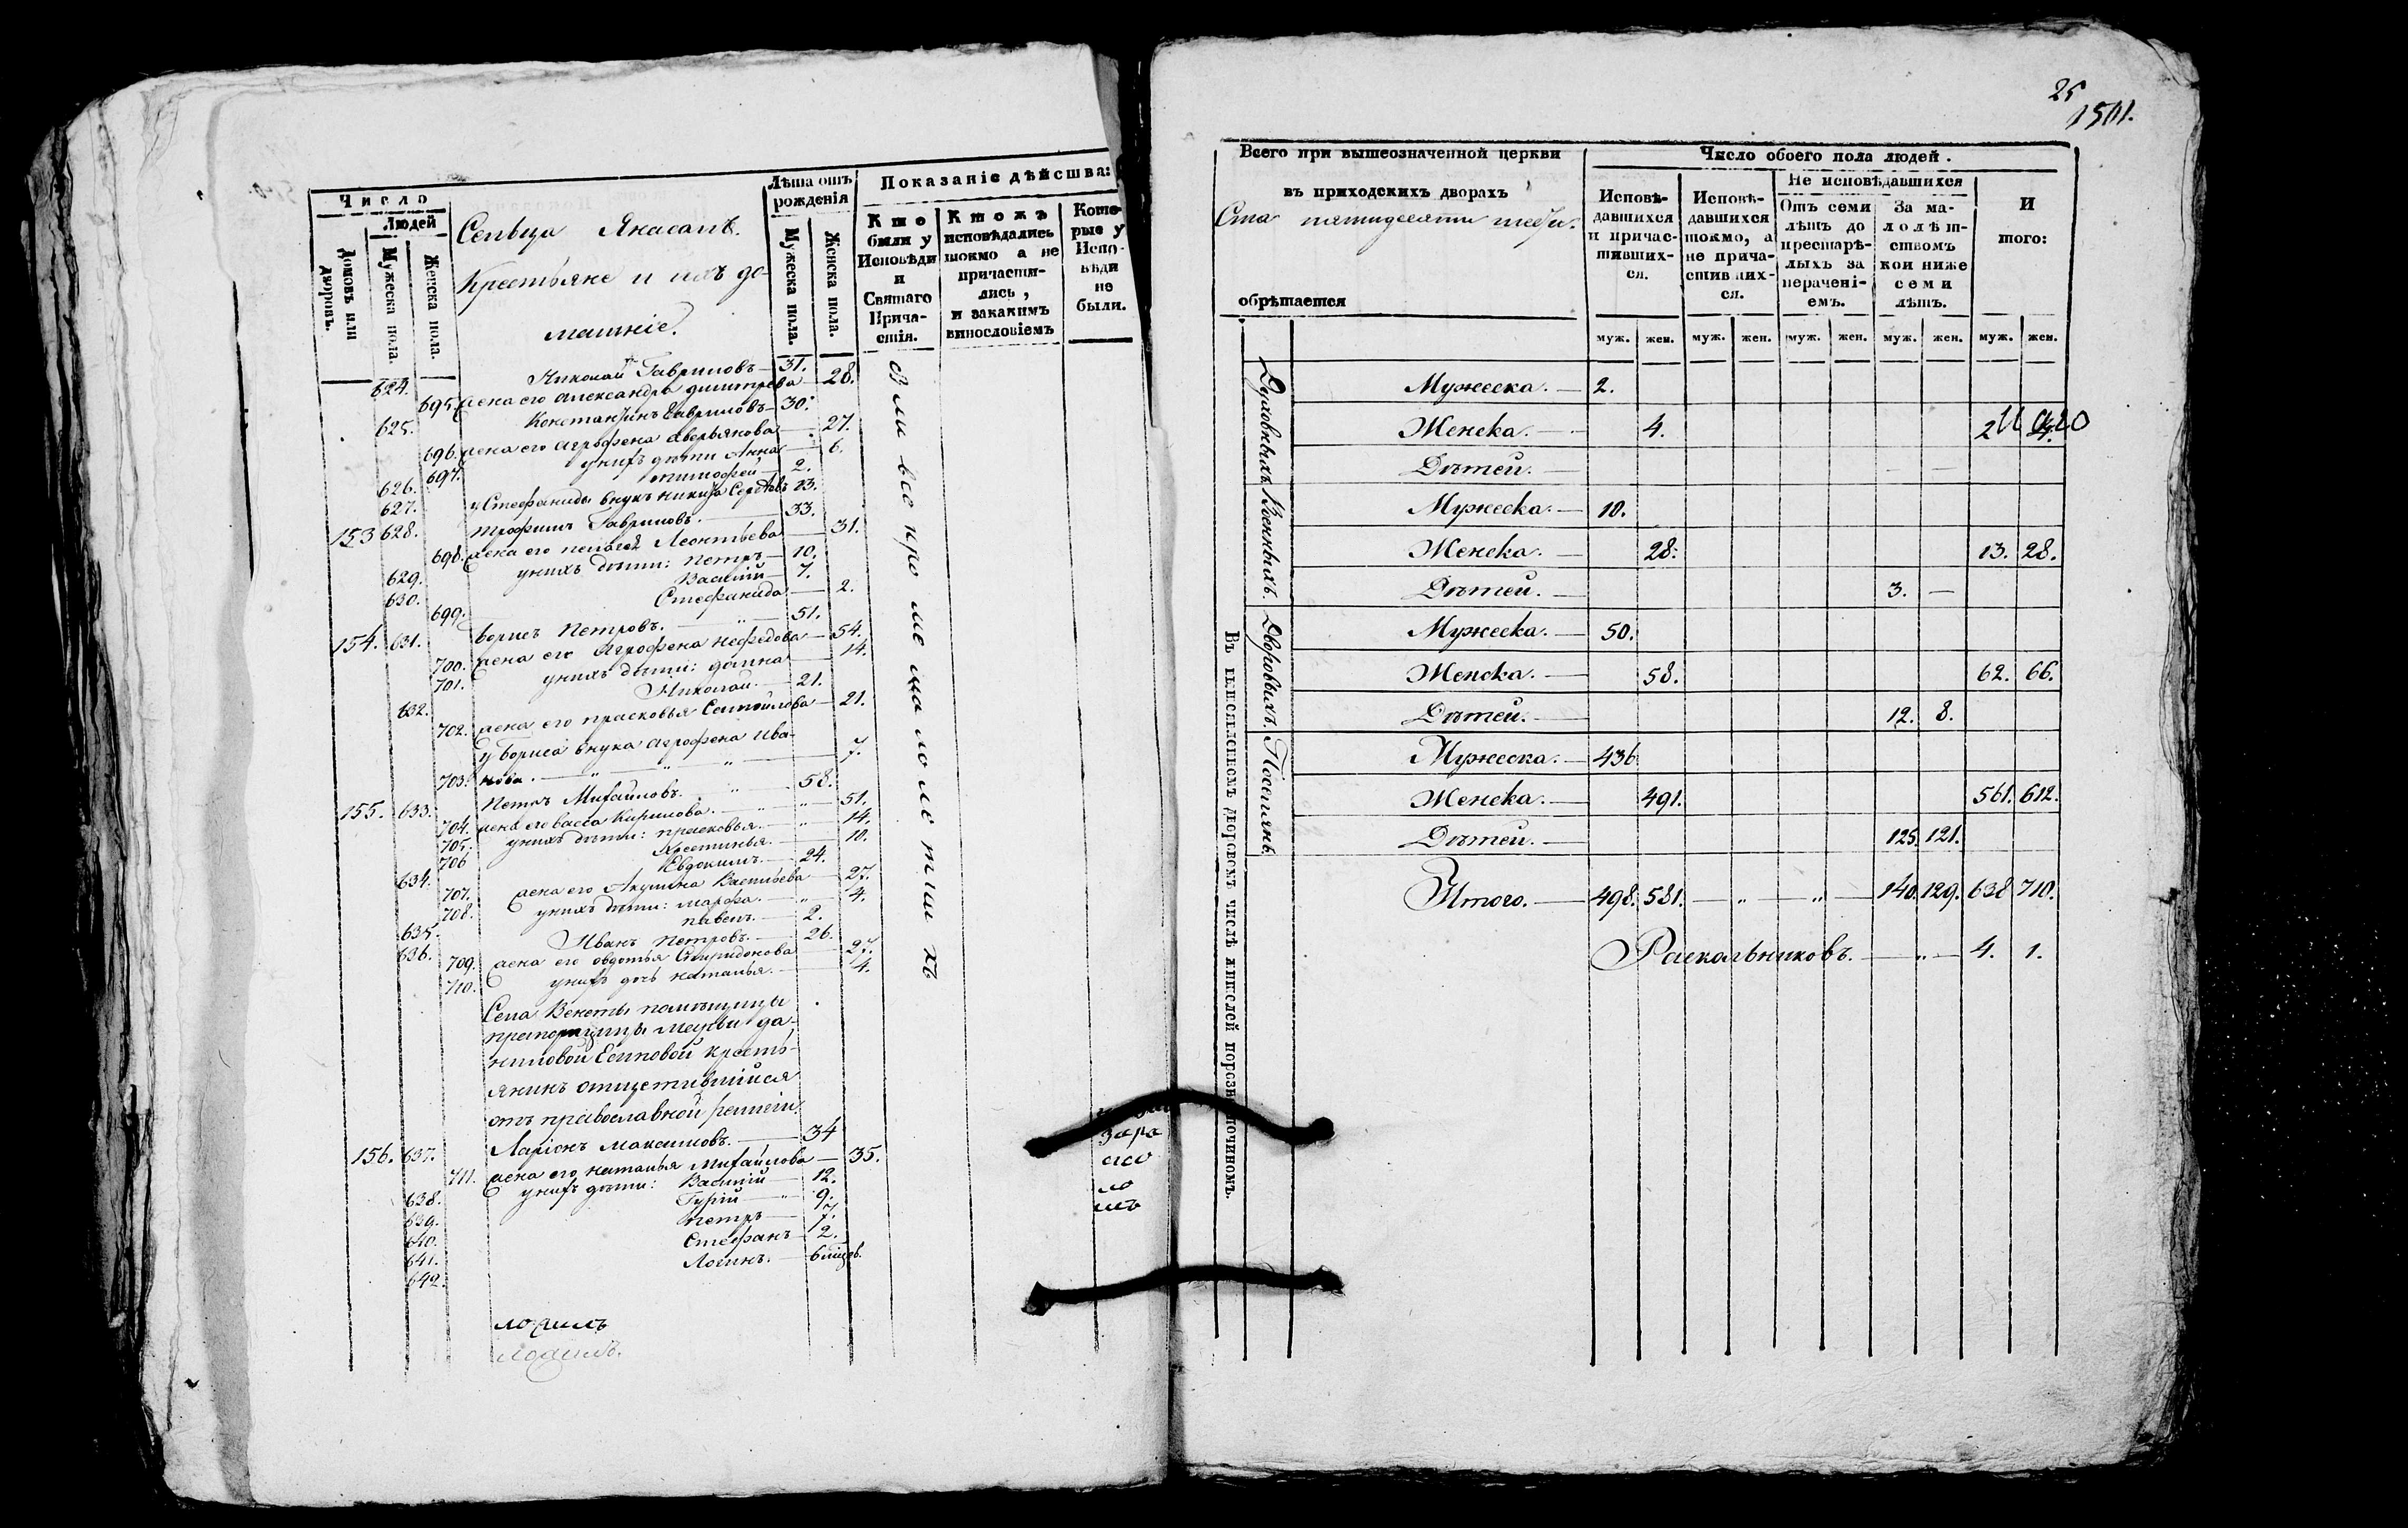 Число
Людей
Домовъ или дворовъ.
Мужеска пола.
Женска пола.
Сельца Анасалѣ.
Крестьяне и ихъ до-
машніе.
Лѣта отъ рожденія
Мужеска пола.
Женска пола.
Показаніе дѣйства:
Кто были у Исповѣди и Святаго Прича-стія.
Ктожъ исповѣдались токмо а не причасти-лись, и закакимъ винословіемъ
Кото-рые у Испо-вѣди не были.
624. Николай Гавриловъ — 31.
695. жена его Александра Димитрева — 28.
625. Констанжинъ Гавриловъ — 30.
696. жена его Агрофена Аверьянова — 27.
697. унихъ дѣти Анна — 6.
626. Тимофей — 2.
627. у Стефаниды внукъ Никита — 13.
153 628. Трофимъ Гавриловъ. — 33.
698. жена его Пелагея Леонтьева — 31.
629. унихъ дѣти: Петръ — 10.
630. Василій — 7.
699. Стефанида — 2.
154. 631. Борисъ Петровъ. — 51.
700. жена его Агрофена Нефедова — 54.
701. унихъ дѣти: Домна — 14.
632. Николай. — 21.
702. жена его Прасковья Самойлова — 21.
у Бориса внука Агрофена Ива-
703. нова. — 7.
155. 633. Петръ Михайловъ. — 58.
704. жена его Васса Кирилова. — 51.
705. унихъ дѣти: Прасковья. — 14.
706 Хрестинья. — 10.
634. Евдокимъ. — 24.
707. жена его Акулина Васильева — 27.
708. унихъ дѣти: Марфа. — 4.
635. Павелъ. — 2.
636. Иванъ Петровъ. — 26.
709. жена его Овдотья Спиридонова — 27.
710. унихъ дочь Наталья. — 4.
Села Векеты помѣщицы
прапорщицы
ниловой Есиповой кресть-
янинъ отщетившійся
отъ православной релігіи.
156. 637. Ларіонъ Максимовъ. — 34
711. жена его Наталья Михайлова — 35.
638. унихъ дѣти: Василій — 12.
639. Гурій — 9.
640. Петръ — 7.
641. Стефанъ — 2.
642. Логинъ. — 6 мѣцов.
были всѣ кро ме ма ло лѣ тны хъ
за ра
ско
ло
мъ
25
1501.
Всего при вышеозначенной церкви
въ приходскихъ дворахъ
Ста пятидесяти шести.
обрѣтается
Число обоего пола людей.
Исповѣ-давшихся и причас-тивших-ся.
Исповѣ-давшихся токмо, а не прича-стивших-ся.
Не исповѣдавшихся
Отъ семи лѣтъ до престарѣ-лыхъ за нерачені-емъ.
За ма-лолѣт-ствомъ кои ниже семи лѣтъ.
И того:
муж. жен. муж. жен. муж. жен. муж. жен. муж. жен.
Духовныхъ
Мужеска. — 2.
Женска. — 4. 2
Дѣтей. — — —
Военныхъ.
Мужеска. — 10.
Женска. — 28. 13. 28.
Дѣтей. — 3. —
Дворовыхъ.
Мужеска. — 50.
Женска. — 58. 62. 66.
Дѣтей. — 12. 8.
Поселянъ.
Мужеска. — 436
Женска. — 491. 561. 612.
Дѣтей. — 125. 121.
Итого. — 498. 581. — „ — „ — 140. 129. 638 710.
Раскольниковъ. — „ — 4. 1.